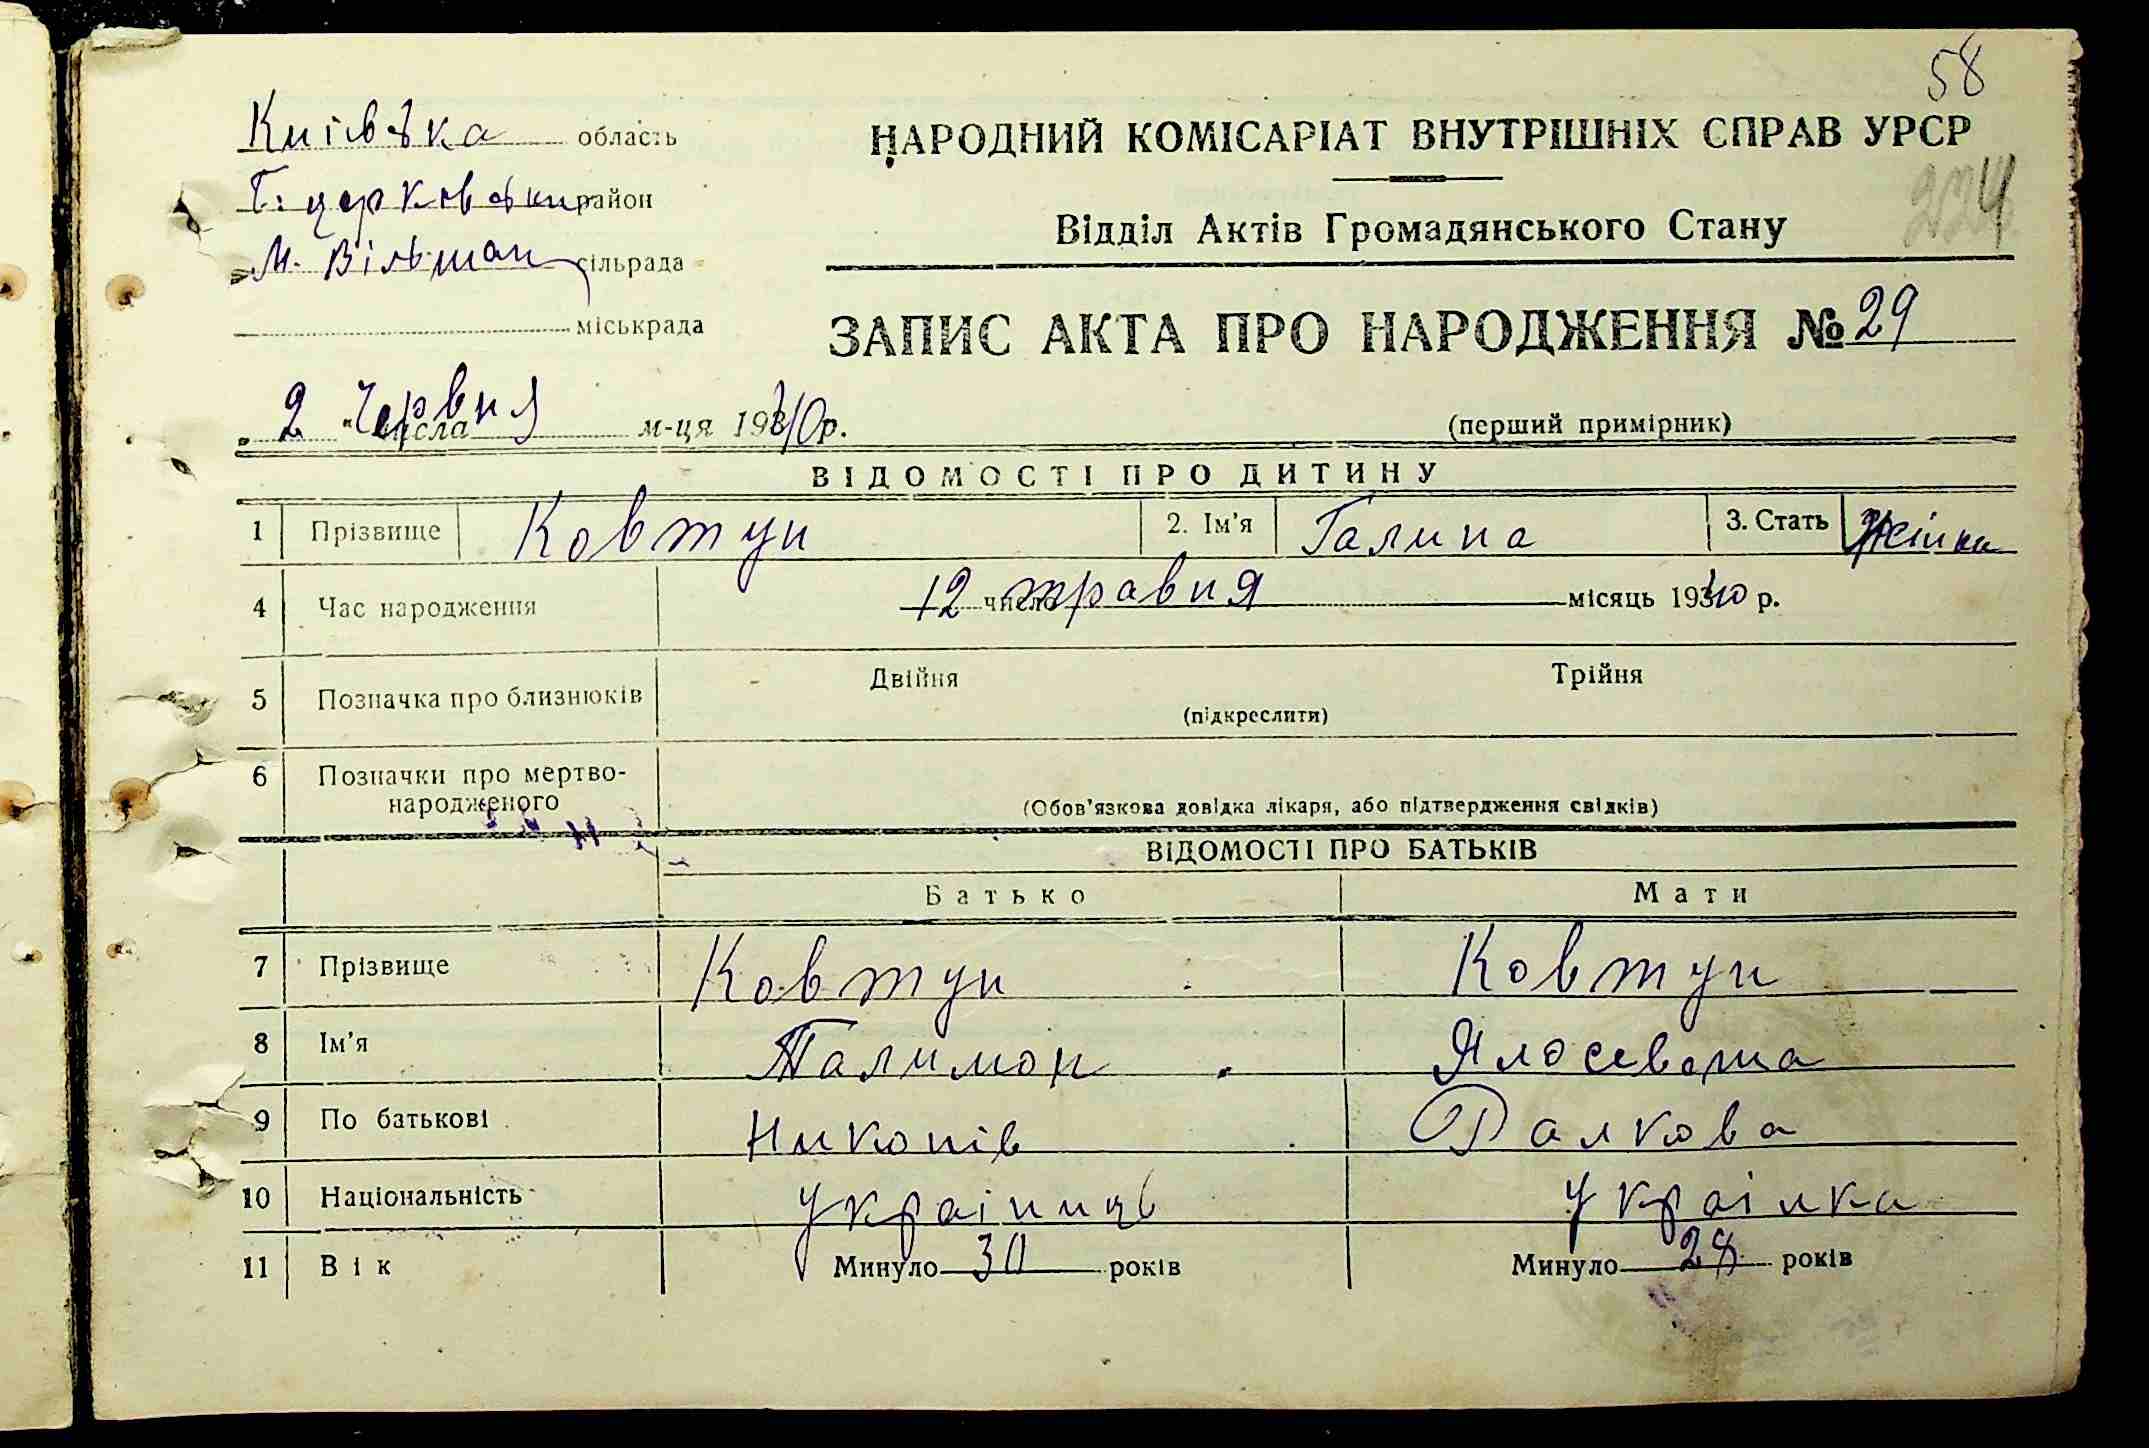 58
Київська область
Б. церковский район
М. Вільшан сільрада
міськрада
НАРОДНИЙ КОМІСАРІАТ ВНУТРІШНІХ СПРАВ УРСР
224
Відділ Актів Громадянського Стану
ЗАПИС АКТА ПРО НАРОДЖЕННЯ № 29
„ 2 " числа Червня м-ця 1940 р.
(перший примірник)
ВІДОМОСТІ ПРО ДИТИНУ
1 Прізвище Ковтун 2. Ім'я Галина 3. Стать
4 Час народження 12 число травня місяць 1940 р.
5 Позначка про близнюків Двійня Трійня
(підкреслити)
6 Позначки про мертво-
народженого (Обов'язкова довідка лікаря, або підтвердження свідків)
ВІДОМОСТІ ПРО БАТЬКІВ
Батько Мати
7 Прізвище Ковтун Ковтун
8 Ім'я Палимон
9 По батькові Никонів
10 Національність Українець Украінка
11 Вік Минуло 30 років Минуло 28 років